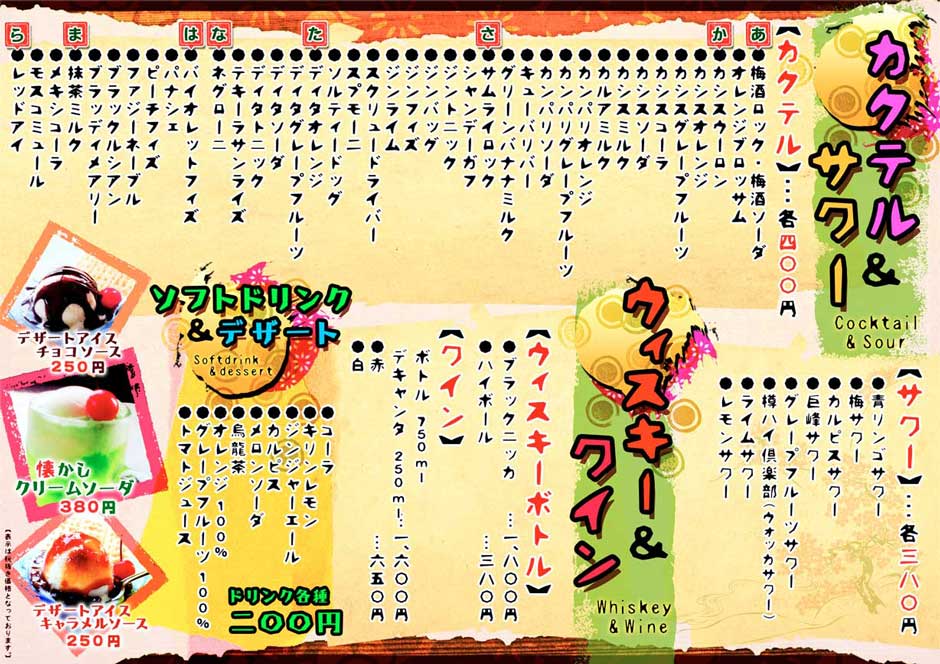 カクテル&
サワー
Cocktail
& Sour
【カクテル】…各四〇〇円
あ
●梅酒ロック・梅酒ソーダ
●オレンジブロッサム
か
●カシスウーロン
●カシスオレンジ
●カシスグレープフルーツ
●カシスコーラ
●カシスソーダ
●カシスミルク
●カルアミルク
●カンパリオレンジ
●カンパリグレープフルーツ
●カンパリソーダ
●キューバリバー
●グリーンバナナミルク
さ
●サムライロック
●シャンディーガフ
●ジントニック
●ジンバッグ
●ジンフィズ
●ジンライム
●スクリュードライバー
●スプモーニ
●ソルティードッグ
た
●ディタオレンジ
●ディタグレープフルーツ
●ディタソーダ
●ディタトニック
●テキーラサンライズ
な
●ネグローニ
は
●バイオレットフィズ
●パナシェ
●ピーチフィズ
●ファジーネーブル
●ブラックルシアン
●ブラッディメアリー
ま
●抹茶ミルク
●メキシコーラ
●モスコミュール
ら
●レッドアイ
【サワー】…各三八〇円
●青リンゴサワー
●梅サワー
●カルピスサワー
●巨峰サワー
●グレープフルーツサワー
●樽ハイ倶楽部(ウォッカサワー)
●ライムサワー
●レモンサワー
ウィスキー&
ワイン
Whiskey
& Wine
【ウィスキーボトル】
●ブラックニッカ …一、八〇〇円
●ハイボール …三八〇円
【ワイン】
ボトル 750ml …一、六〇〇円
デキャンタ 250ml …六五〇円
●赤
●白
ソフトドリンク
&デザート
Softdrink
& dessert
●コーラ
●キリンレモン
●ジンジャーエール
●カルピス
●メロンソーダ
●烏龍茶
●オレンジ100%
●グレープフルーツ100%
●トマトジュース
ドリンク各種
二〇〇円
デザートアイス
チョコソース
250円
懐かし
クリームソーダ
380円
デザートアイス
キャラメルソース
250円
【表示は税抜き価格となっております。】